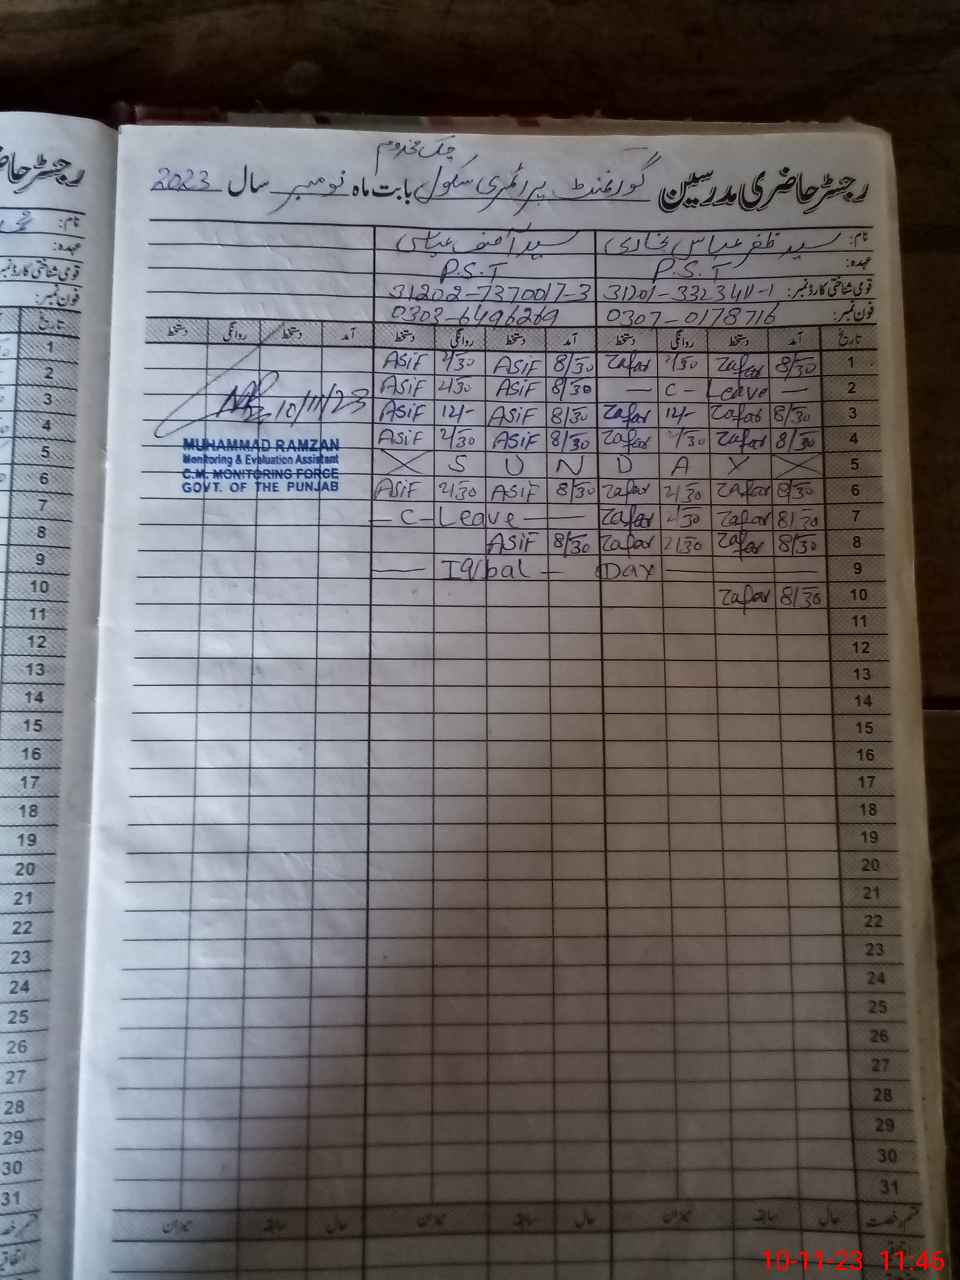 چک مخدوم
رجسٹر حاضری مدرسین گورنمنٹ پرائمری سکول بابت ماہ نومبر سال 2023
نام: سید ظفر عباس بخاری سید آصف عباس
عہدہ: P.S.T P.S.T
قومی شناختی کارڈ نمبر: 31201-3323411-1 31202-7370017-3
فون نمبر: 0307-0178716 0303-6496269
تاریخ آمد دستخط روانگی دستخط آمد دستخط روانگی دستخط آمد دستخط روانگی دستخط
1 8/30 Zafar 2/30 Zafar 8/30 ASiF 2/30 ASiF
2 — C - Leave — 8/30 ASiF 2/30 ASiF
3 8/30 Zafar 12/- Zafar 8/30 ASiF 12/- ASiF
4 8/30 Zafar 2/30 Zafar 8/30 ASiF 2/30 ASiF
5 S U N D A Y
6 8/30 Zafar 2/30 Zafar 8/30 ASiF 2/30 ASiF
7 8/30 Zafar 2/30 Zafar — C - Leave —
8 8/30 Zafar 2/30 Zafar 8/30 ASiF
9 — Iqbal — Day —
10 8/30 Zafar
11
12
13
14
15
16
17
18
19
20
21
22
23
24
25
26
27
28
29
30
31
10/11/23
MUHAMMAD RAMZAN
Monitoring & Evaluation Assistant
C.M. MONITORING FORCE
GOVT. OF THE PUNJAB
قسم رخصت حال سابقہ میزان حال سابقہ میزان حال سابقہ میزان
رجسٹر حاضری
نام:
عہدہ:
قومی شناختی کارڈ نمبر
فون نمبر:
تاریخ
1
2
3
4
5
6
7
8
9
10
11
12
13
14
15
16
17
18
19
20
21
22
23
24
25
26
27
28
29
30
31
10-11-23 11:46